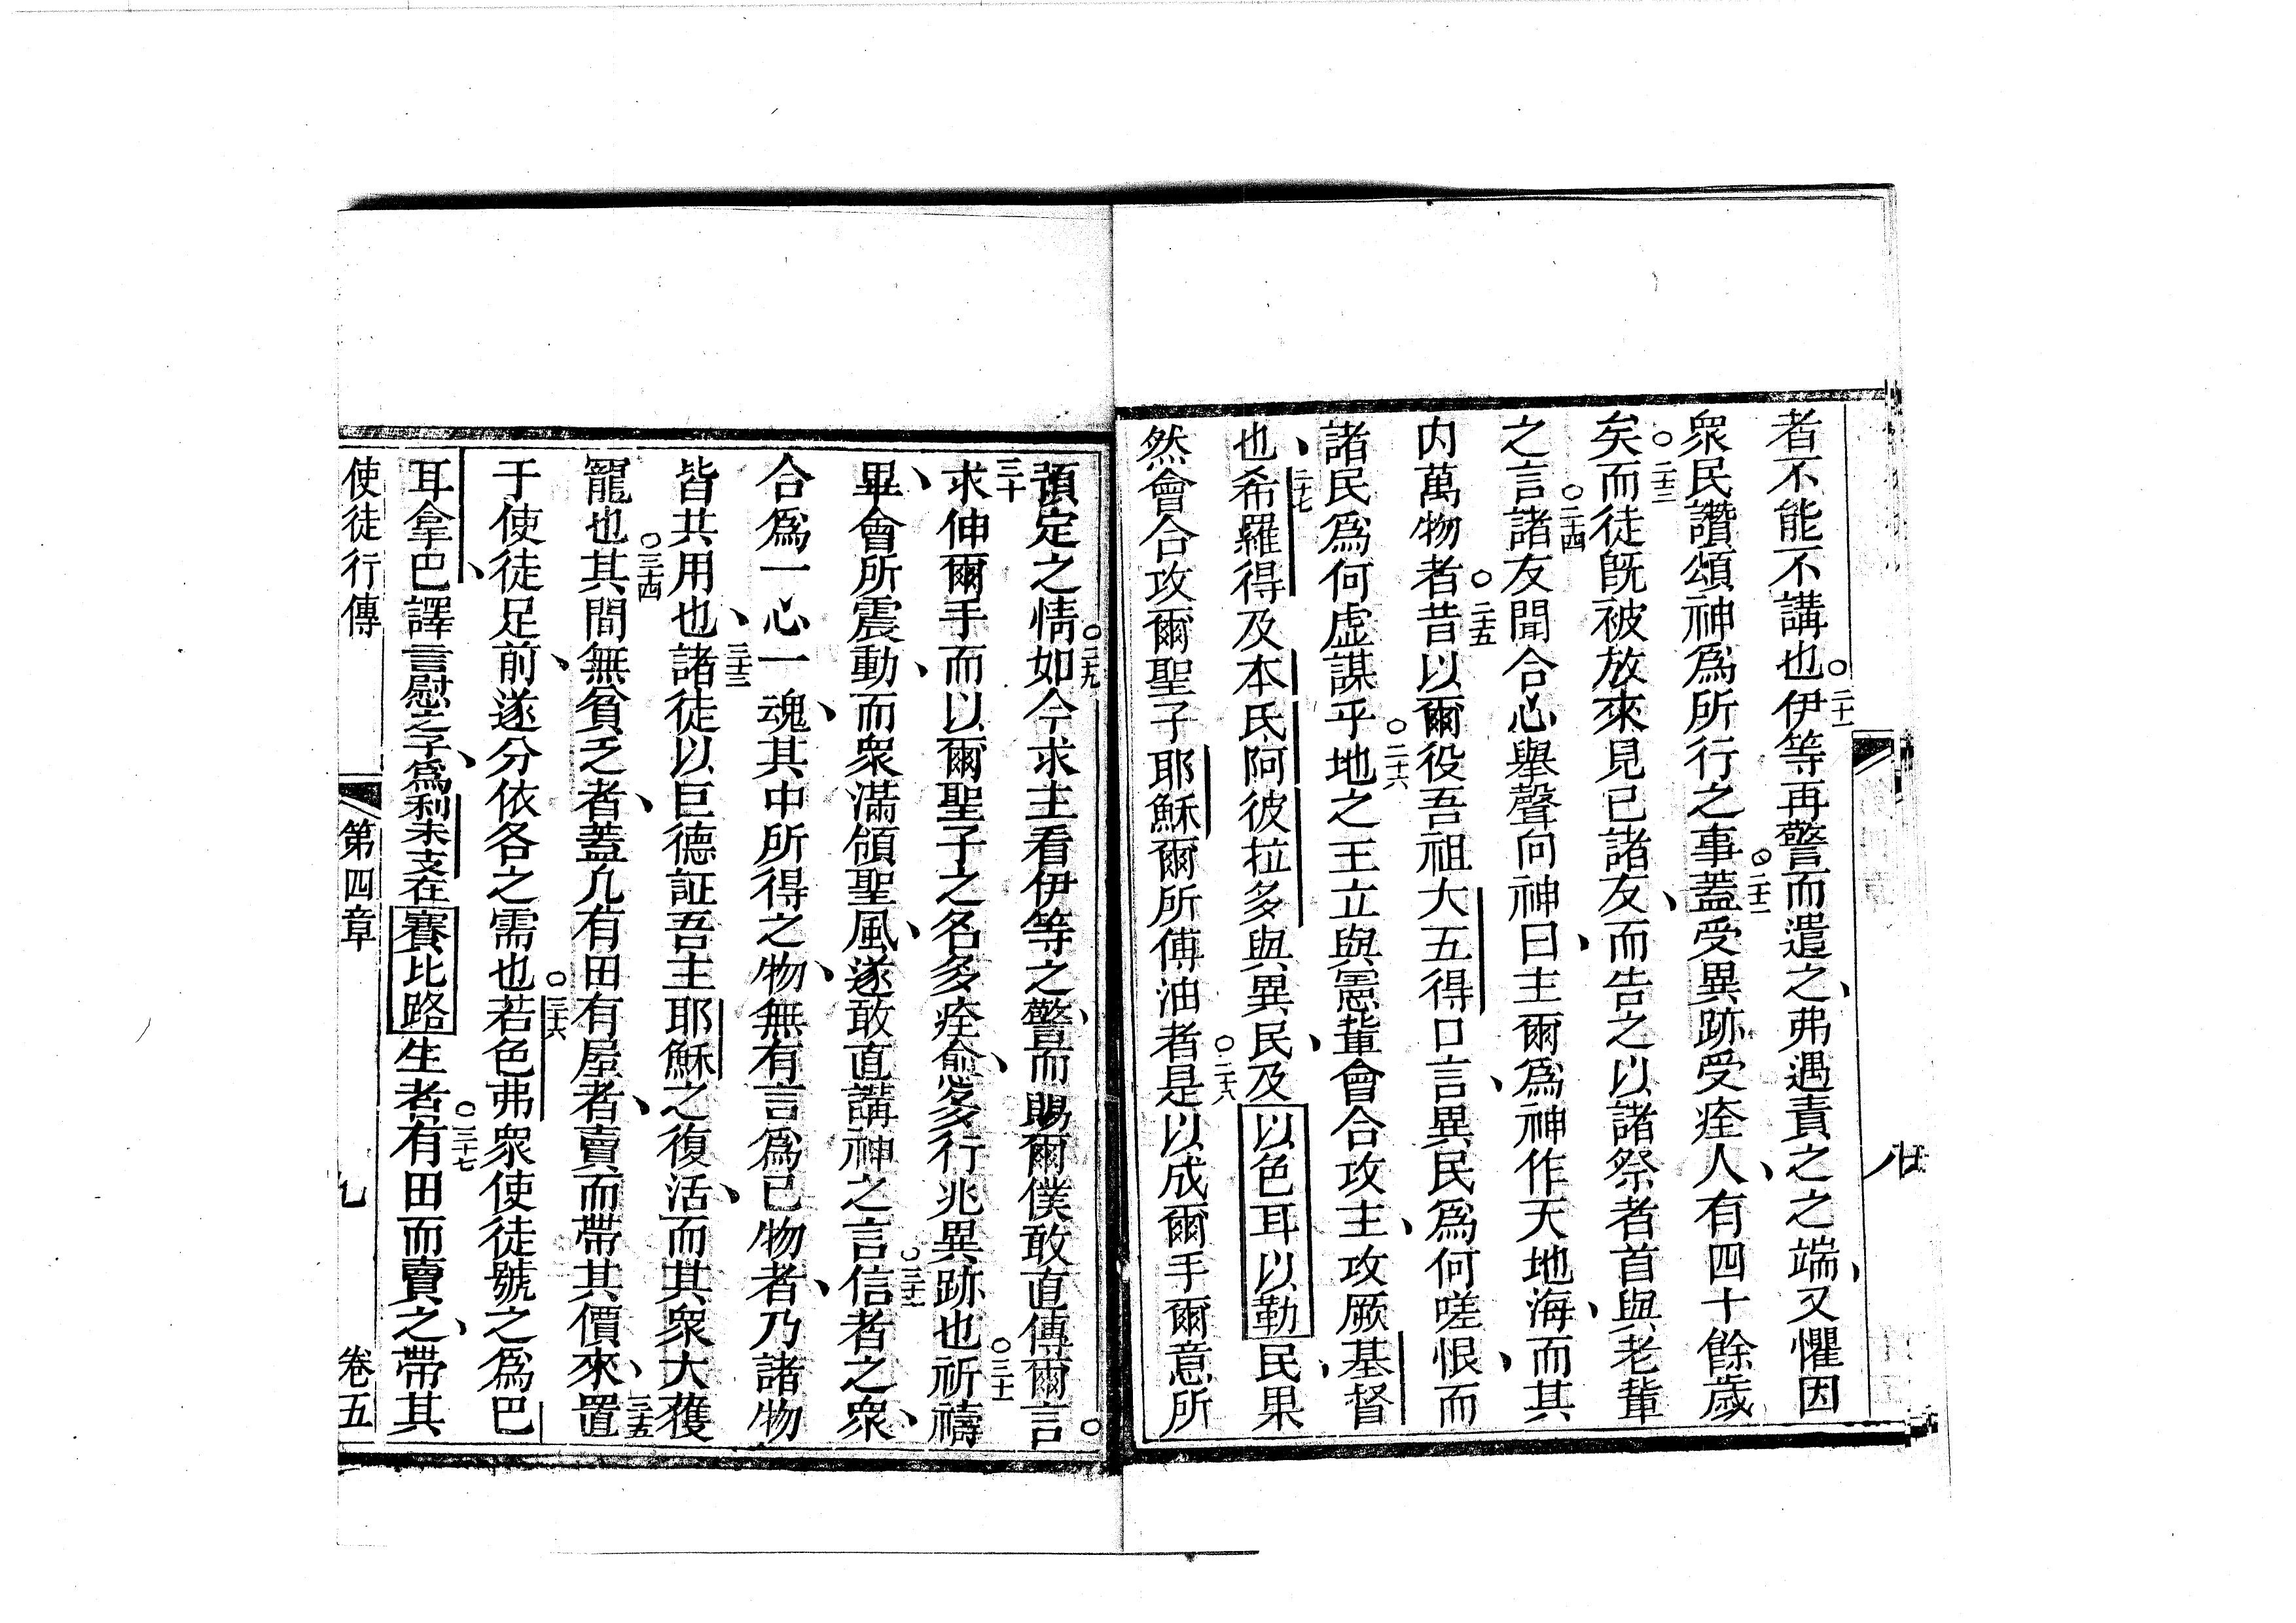 者不能不講也○二十一伊等再警而遣之、弗遇責之之端、又懼因
衆民讚頌神爲所行之事○二十二蓋受異跡受痊人、有四十餘歲
矣○二十三而徒旣被放來見已諸友、而告之以諸祭者首與老輩
之言○二十四諸友聞合心舉聲向神曰、主爾爲神作天地海、而其
内萬物者○二十五昔以爾役吾祖大五得口言、異民爲何嗟恨、而
諸民爲何虛謀乎○二十六地之王立與憲輩會合攻主、攻厥基督
也、二十七希羅得及本氏阿彼拉多與異民、及以色耳以勒民、果
然會合攻爾聖子耶穌爾所傅油者○二十八是以成爾手爾意所
預定之情○二九如今求主看伊等之警、而賜爾僕敢直傳爾言○
三十求伸爾手而以爾聖子之名多痊愈、多行兆異跡也○三十一祈禱
畢、會所震動、而衆滿領聖風、遂敢直講神之言○三十二信者之衆、
合爲一心一魂、其中所得之物、無有言爲己物者、乃諸物
皆共用也、三十三諸徒以巨德証吾主耶穌之復活、而其衆大獲
寵也○三十四其間無貧乏者、蓋凡有田有屋者、賣而帶其價來、三十五置
于使徒足前、遂分依各之需也○三十六若色弗衆使徒號之爲巴
耳拿巴、譯言慰之子、爲利未支在賽比路生者○三十七有田而賣之、帶其
使徒行傳 第四章 九 卷五